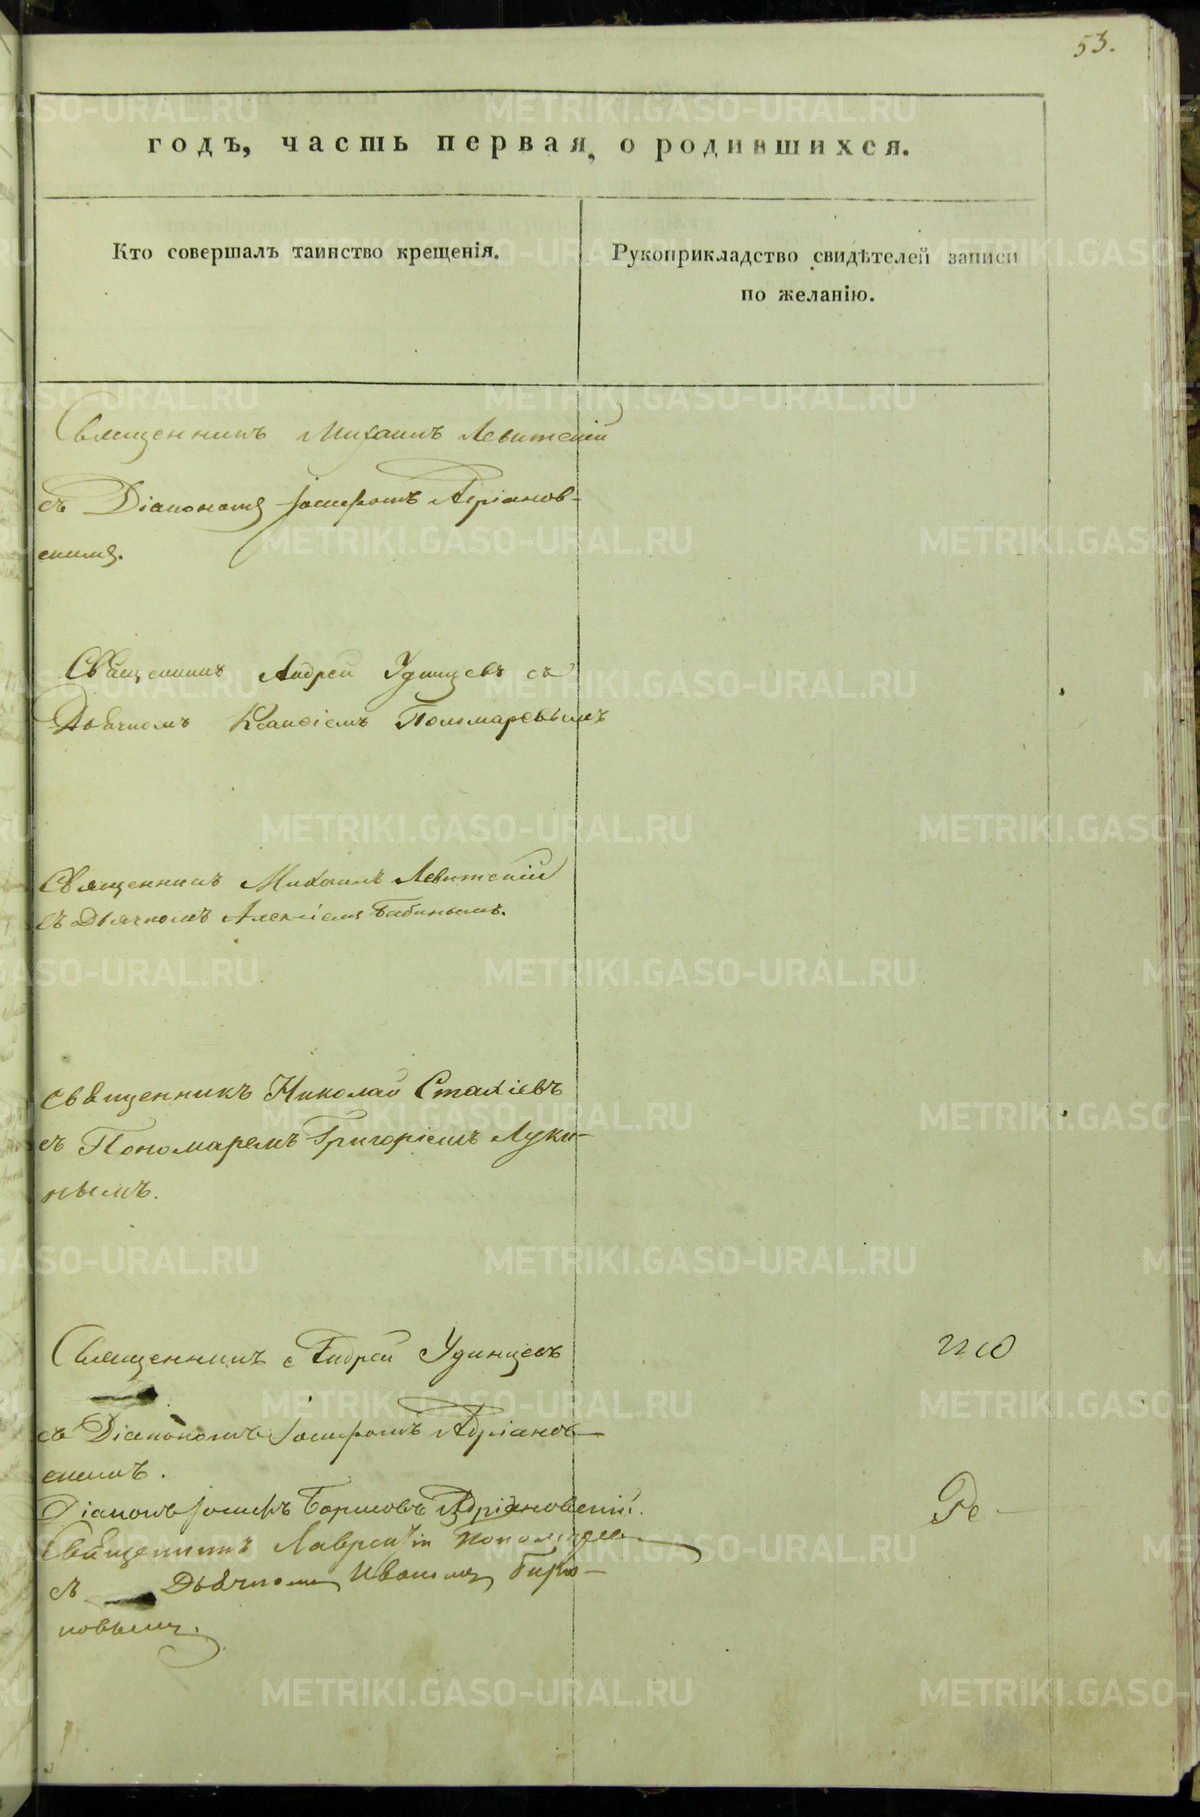 53.
годъ, часть первая, о родившихся.
Кто совершалъ таинство крещенія.
Рукоприкладство свидѣтелей записи
по желанію.
Священникъ Михаилъ Левитскій
съ Діакономъ Іосифомъ Адріанов-
скимъ.
Священникъ Андрей Удинцевъ съ
Дьячкомъ Пономаревымъ
Священникъ Михаилъ Левитскій
съ Дьячкомъ Алексіемъ Бабинымъ.
Священникъ Николай Стахіевъ
съ Пономаремъ Григоріемъ Луки-
нымъ.
Священникъ Андрей Удинцевъ
съ Діакономъ Іосифомъ Адріанов-
скимъ.
Діаконъ Іосифъ Адріановскій.
Священникъ Лаврентій
съ Дьячкомъ Иваномъ Бирю-
ковымъ.
METRIKI.GASO-URAL.RU